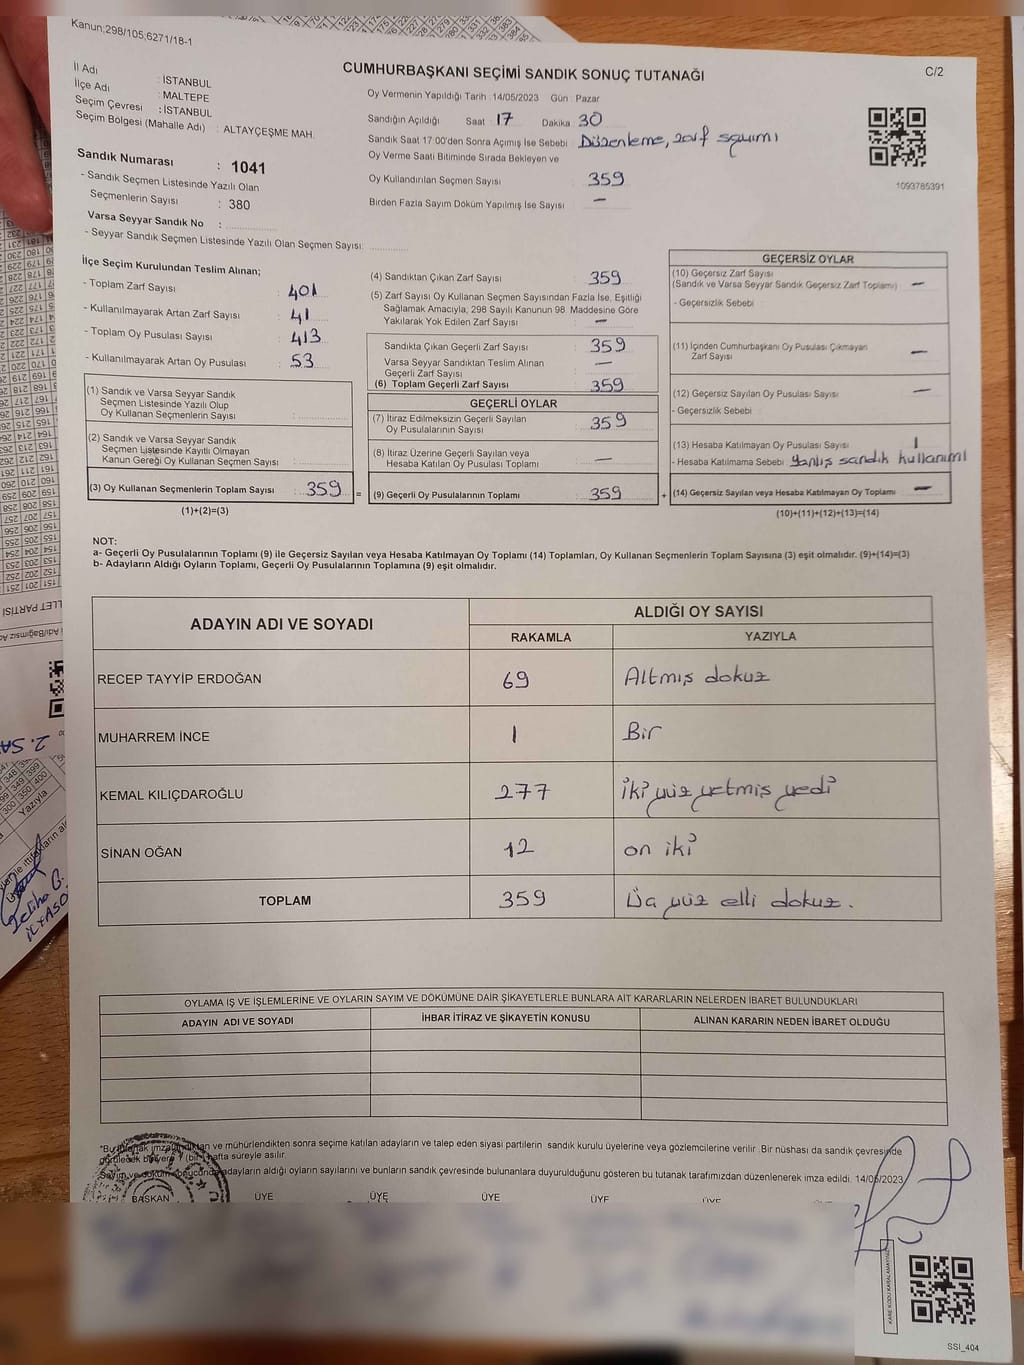 Kanun;298/105,6271/18-1
C/2
CUMHURBAŞKANI SEÇİMİ SANDIK SONUÇ TUTANAĞI
İl Adı : İSTANBUL
İlçe Adı : MALTEPE
Seçim Çevresi : İSTANBUL
Seçim Bölgesi (Mahalle Adı) : ALTAYÇEŞME MAH.
Sandık Numarası : 1041
- Sandık Seçmen Listesinde Yazılı Olan
Seçmenlerin Sayısı : 380
Varsa Seyyar Sandık No :
- Seyyar Sandık Seçmen Listesinde Yazılı Olan Seçmen Sayısı:
Oy Vermenin Yapıldığı Tarih :14/05/2023 Gün : Pazar
Sandığın Açıldığı Saat 17 Dakika 30
Sandık Saat 17:00'den Sonra Açımış İse Sebebi Düzenleme, zarf sayımı
Oy Verme Saati Bitiminde Sırada Bekleyen ve
Oy Kullandırılan Seçmen Sayısı : 359
Birden Fazla Sayım Döküm Yapılmış İse Sayısı : —
1093785391
İlçe Seçim Kurulundan Teslim Alınan;
- Toplam Zarf Sayısı : 401
- Kullanılmayarak Artan Zarf Sayısı : 41
- Toplam Oy Pusulası Sayısı : 413
- Kullanılmayarak Artan Oy Pusulası : 53
(1) Sandık ve Varsa Seyyar Sandık
Seçmen Listesinde Yazılı Olup
Oy Kullanan Seçmenlerin Sayısı :
(2) Sandık ve Varsa Seyyar Sandık
Seçmen Listesinde Kayıtlı Olmayan
Kanun Gereği Oy Kullanan Seçmen Sayısı :
(3) Oy Kullanan Seçmenlerin Toplam Sayısı : 359 =
(1)+(2)=(3)
(4) Sandıktan Çıkan Zarf Sayısı : 359
(5) Zarf Sayısı Oy Kullanan Seçmen Sayısından Fazla İse, Eşitliği
Sağlamak Amacıyla, 298 Sayılı Kanunun 98. Maddesine Göre
Yakılarak Yok Edilen Zarf Sayısı : —
Sandıkta Çıkan Geçerli Zarf Sayısı : 359
Varsa Seyyar Sandıktan Teslim Alınan —
Geçerli Zarf Sayısı
(6) Toplam Geçerli Zarf Sayısı : 359
GEÇERLİ OYLAR
(7) İtiraz Edilmeksizin Geçerli Sayılan
Oy Pusulalarının Sayısı : 359
(8) İtiraz Üzerine Geçerli Sayılan veya
Hesaba Katılan Oy Pusulası Toplamı : —
(9) Geçerli Oy Pusulalarının Toplamı : 359 +
GEÇERSİZ OYLAR
(10) Geçersiz Zarf Sayısı
(Sandık ve Varsa Seyyar Sandık Geçersiz Zarf Toplamı) : —
- Geçersizlik Sebebi :
(11) İçinden Cumhurbaşkanı Oy Pusulası Çıkmayan
Zarf Sayısı : —
(12) Geçersiz Sayılan Oy Pusulası Sayısı : —
- Geçersizlik Sebebi :
(13) Hesaba Katılmayan Oy Pusulası Sayısı : 1
- Hesaba Katılmama Sebebi : Yanlış sandık kullanımı
(14) Geçersiz Sayılan veya Hesaba Katılmayan Oy Toplamı : —
(10)+(11)+(12)+(13)=(14)
NOT:
a- Geçerli Oy Pusulalarının Toplamı (9) ile Geçersiz Sayılan veya Hesaba Katılmayan Oy Toplamı (14) Toplamları, Oy Kullanan Seçmenlerin Toplam Sayısına (3) eşit olmalıdır. (9)+(14)=(3)
b- Adayların Aldığı Oyların Toplamı, Geçerli Oy Pusulalarının Toplamına (9) eşit olmalıdır.
ADAYIN ADI VE SOYADI
ALDIĞI OY SAYISI
RAKAMLA YAZIYLA
RECEP TAYYİP ERDOĞAN 69 Altmış dokuz
MUHARREM İNCE 1 Bir
KEMAL KILIÇDAROĞLU 277 iki yüz yetmiş yedi
SİNAN OĞAN 12 on iki
TOPLAM 359 Üç yüz elli dokuz.
OYLAMA İŞ VE İŞLEMLERİNE VE OYLARIN SAYIM VE DÖKÜMÜNE DAİR ŞİKAYETLERLE BUNLARA AİT KARARLARIN NELERDEN İBARET BULUNDUKLARI
ADAYIN ADI VE SOYADI İHBAR İTİRAZ VE ŞİKAYETİN KONUSU ALINAN KARARIN NEDEN İBARET OLDUĞU
ve mühürlendikten sonra seçime katılan adayların ve talep eden siyasi partilerin sandık kurulu üyelerine veya gözlemcilerine verilir .Bir nüshası da sandık çevresinde
hafta süreyle asılır.
adayların aldığı oyların sayılarını ve bunların sandık çevresinde bulunanlara duyurulduğunu gösteren bu tutanak tarafımızdan düzenlenerek imza edildi. 14/05/2023
BAŞKAN ÜYE ÜYE ÜYE ÜYE ÜYE
SSI_404